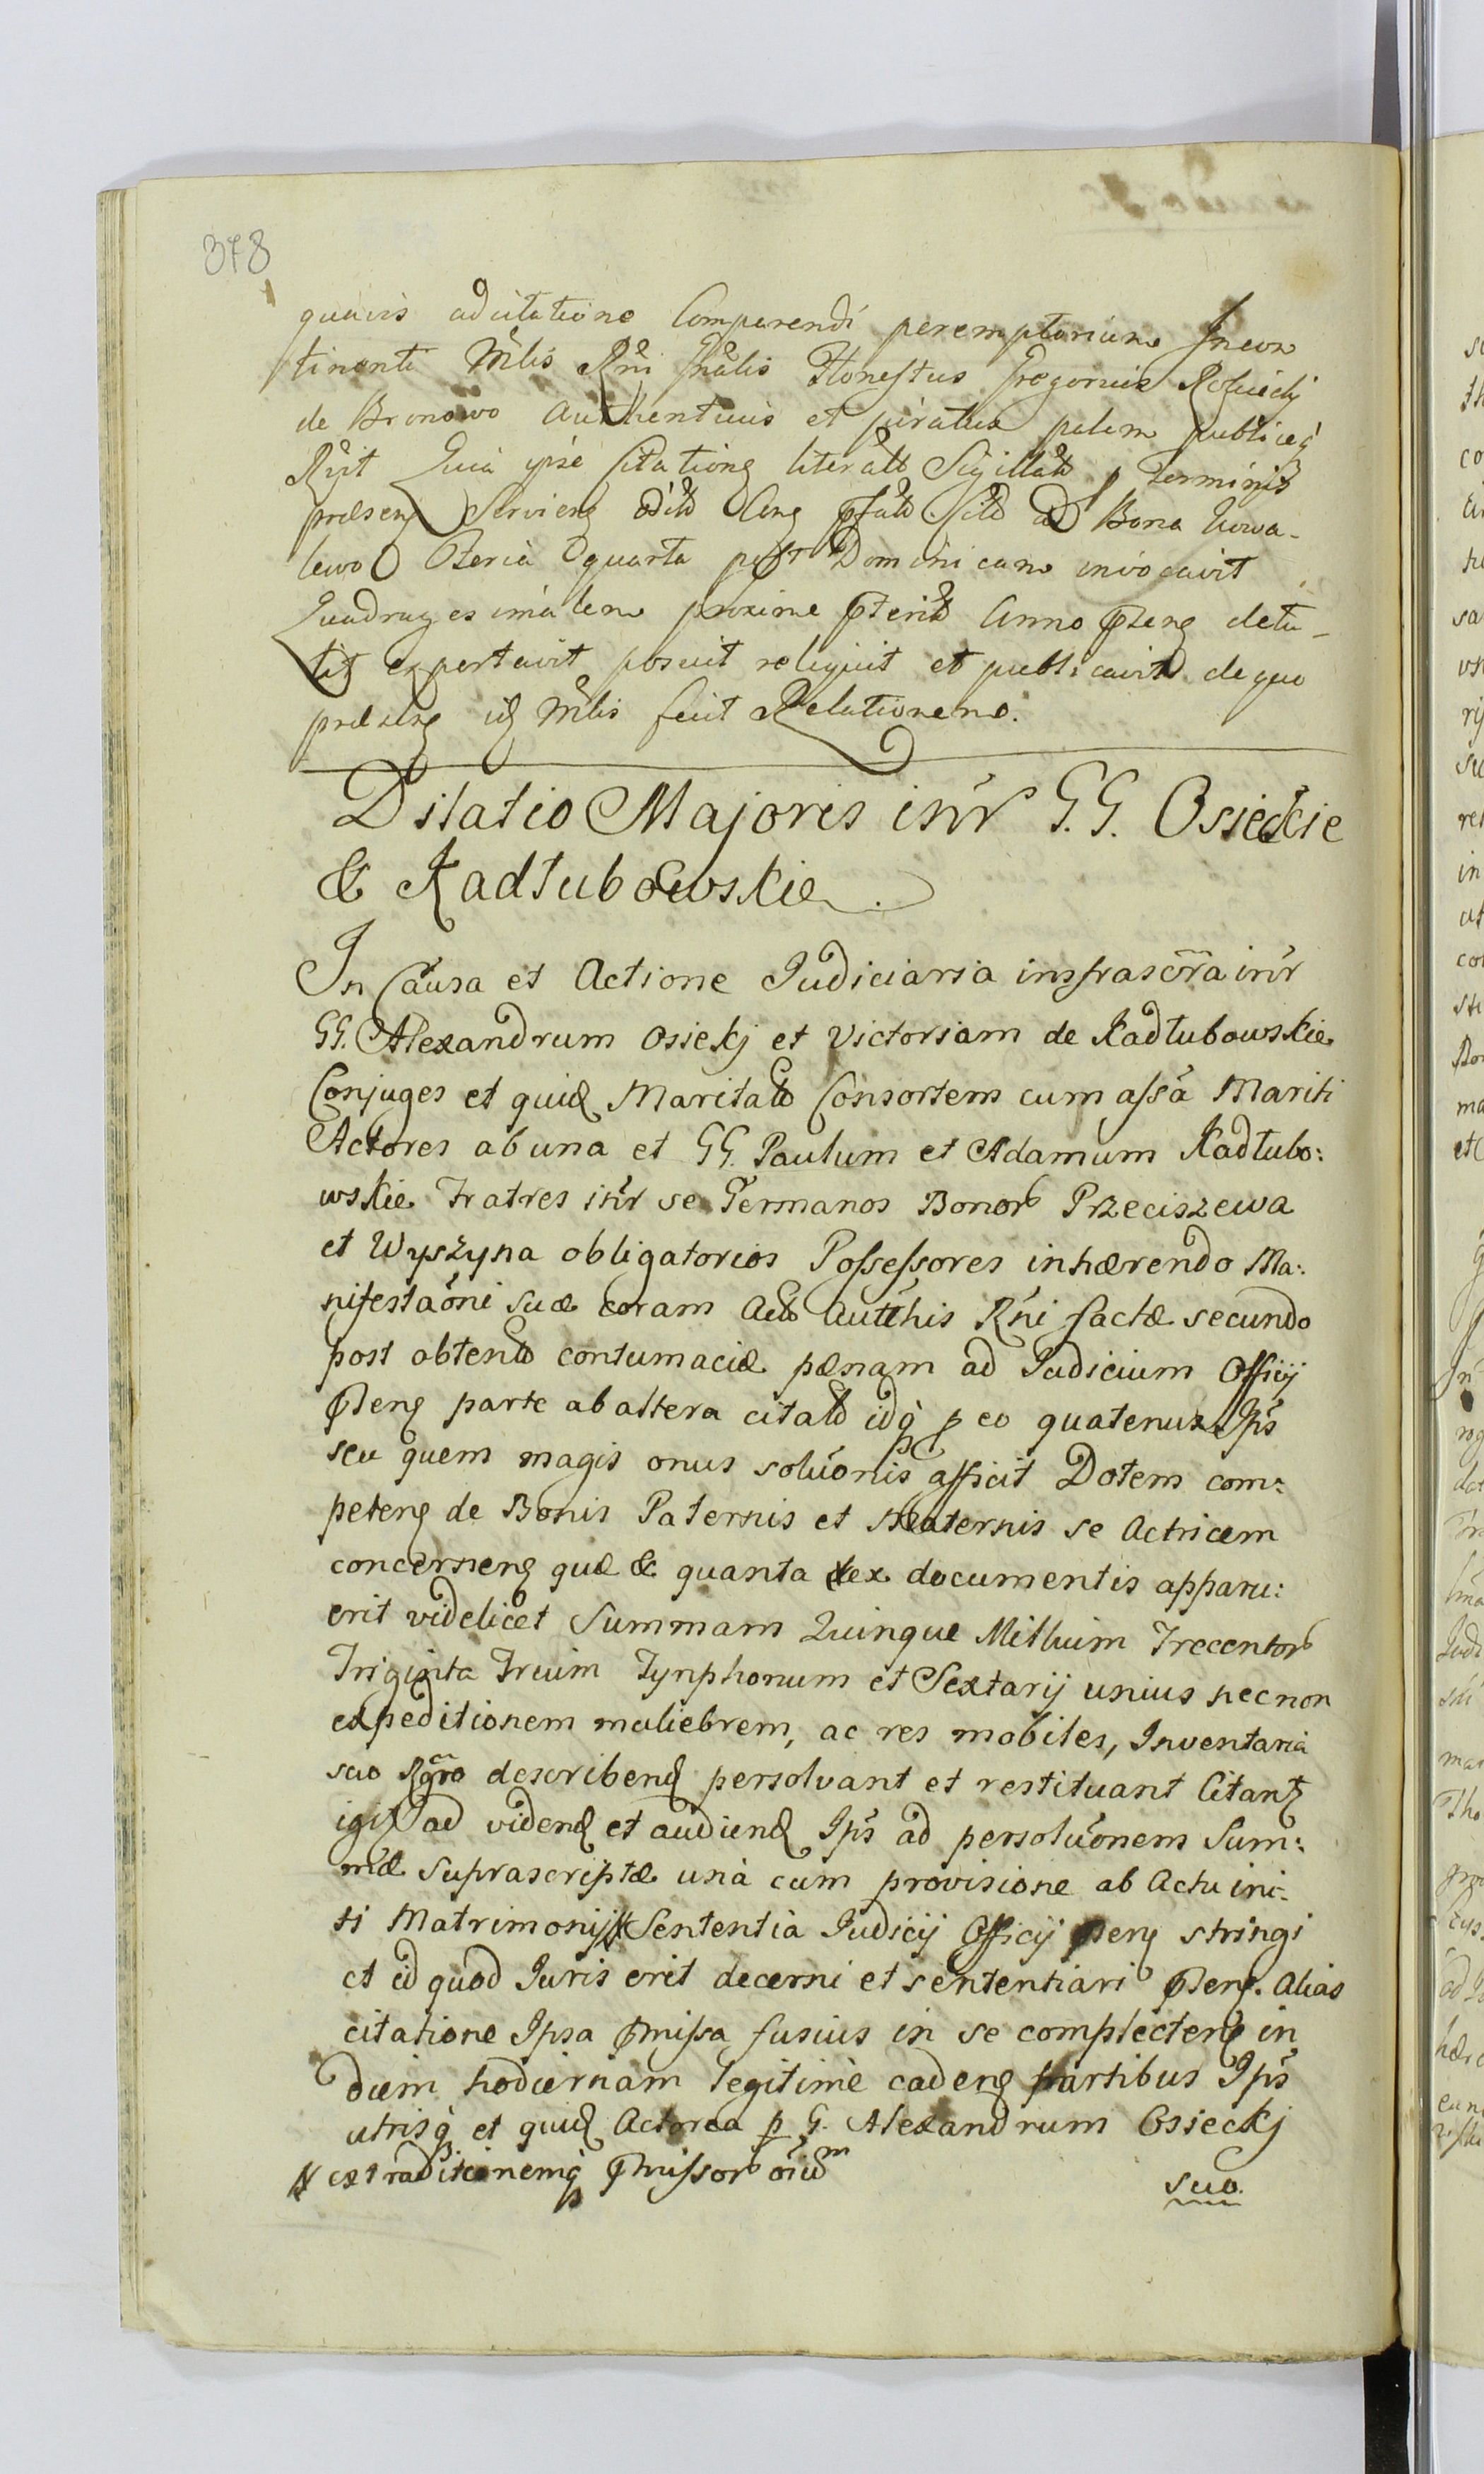 378
quavis adcitatione Comparendi peremptorium Incon
tinenti Mlis Rni Gnalis Honestus Gregorius
de Bronowo Authenticus et juratus palam publiceq
Rsit Quia ipse Citationq literalt Sigillat Terminis
praesenq Servienq ad Bona Kowa-
lewo Feria quarta post Dominicam invocavit
Quadragesimalem proxime pterit Anno psenq detu-
lit exportavit posuit reliquit et publicavit de quo
praesenq idq Mlis fecit Relationem.
Dilatio Majoris intr G.G. Osieckie
& Kadłubowskie.
In Causa et Actione Judiciaria infrascra intr
GG. Alexandrum Osiekj et Victoriam de Kadłubowskie
Conjuges et quidq Maritalt Consortem cum assa Mariti
Actores ab una et GG. Paulum et Adamum Kadłubo:
wskie Fratres intr se Germanos Bonor Przeciszewa
et Wyszyna obligatorios Possessores inhærendo Ma:
nifestaoni suæ coram Act Autthis Rni factæ secundo
post obtent contumaciæ pænam ad Judicium Officij
psenq parte ab altera citat idq p eo quatenus Ips
seu quem magis onus soluonis afficit Dotem com:
petenq de Bonis Paternis et Maternis se Actricem
concernenq quæ & quanta ex documentis apparu:
erit videlicet Summam Quinque Millium Trecentor
Triginta Trium Tynphonum et Sextarij unius necnon
expeditionem muliebrem, ac res mobiles, Inventario
suo Rgro describendq persolvant et restituant Citant
igir ad vidend et audiend Ips ad persoluonem Sum:
mæ Suprascriptæ unà cum provisione ab Actu ini:
ti Matrimonij # Sententia Judicij Officij psenq stringi
et id quod Juris erit decerni et sententiari psenq. Alias
citatione Ipsa pmissa fusius in se complectenq in
diem hodiernam legitimè cadenq partibus Ips
utrisq et quidq Actorea p G. Alexandrum Osieckj
# extraditionemq pmissor oium
suo.